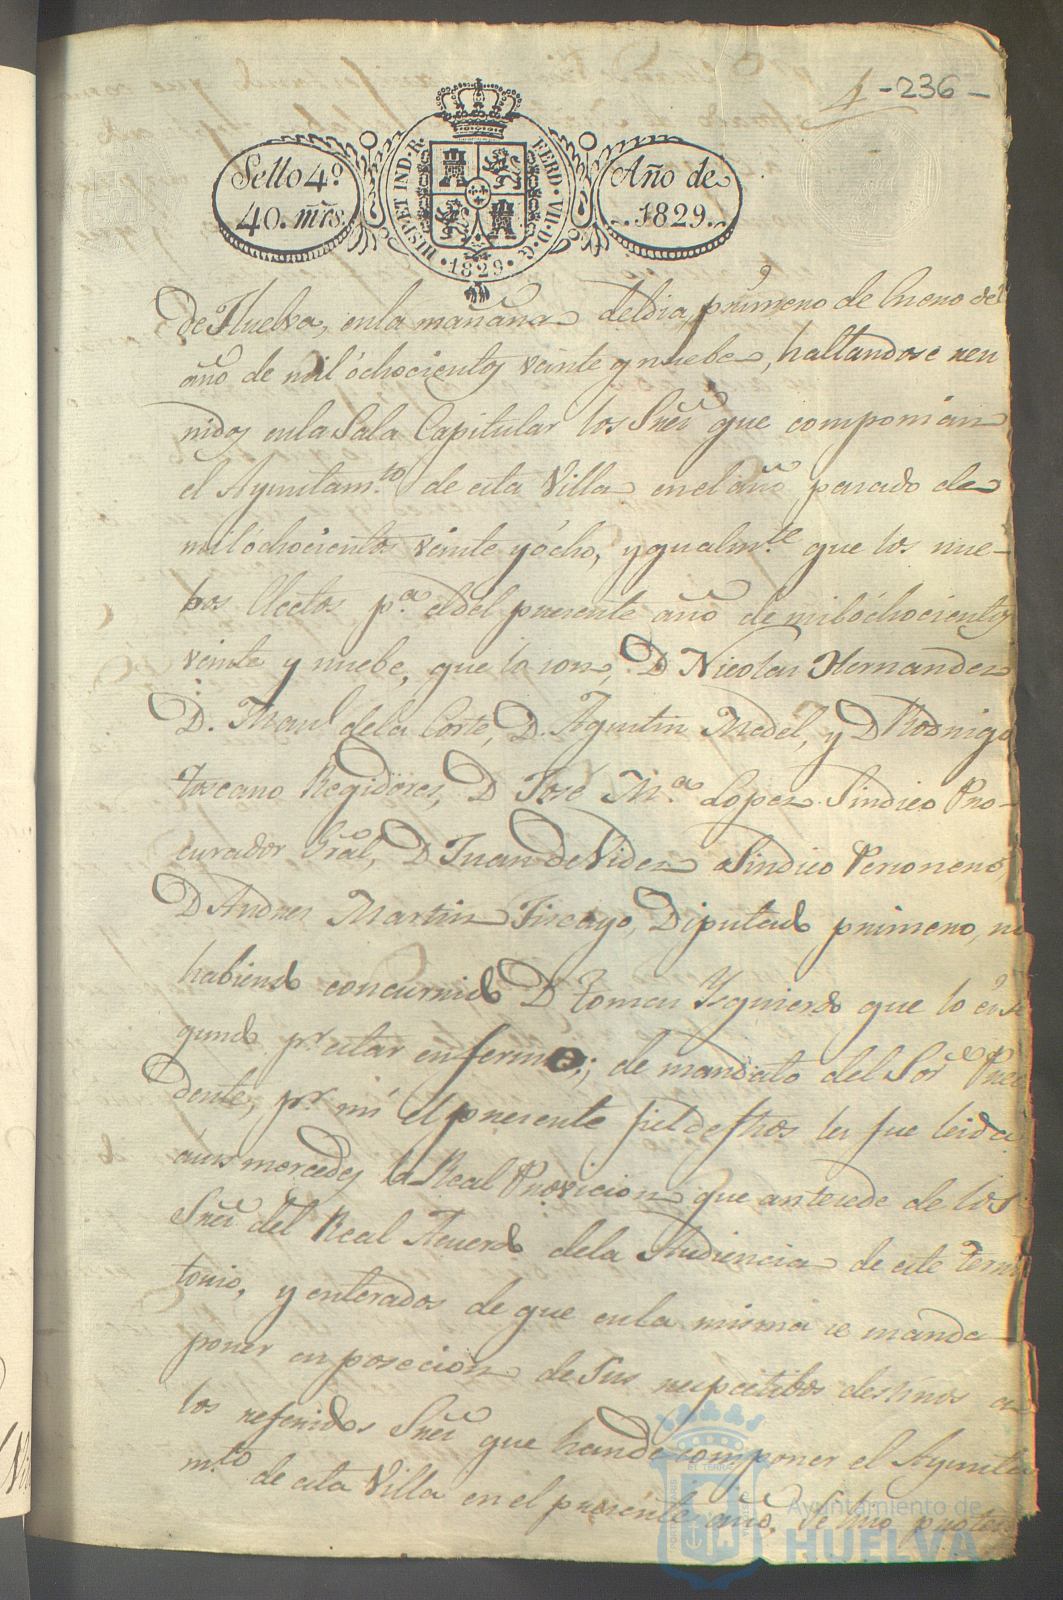 4 - 236 -
Sello 4.º
40. mrs.
HISP. ET IND. R.
FERD. VII. D. G.
1829
Año de
1829.
de Huelva, enla mañana deldia primero de Enero del
año de mil ochocientos veinte y nuebe, hallandose reu
nidos enla Sala Capitular los Sres. que componian
el Ayuntam.to de esta Villa en el año pasado de
mil ochocientos veinte y ocho, y gualm.te que los nue-
bos Electos p.a el del presente año de mil ochocientos
veinte y nuebe, que lo son, D Nicolas Hernandez
D. Man.l dela Corte, D. Agustin Medel, y D Rodrigo
Toscano Regidores, D José M.a Lopez Sindico Pro-
curador Gral, D Juan de Vides Sindico Personero,
D Andres Martin Tiscayo, Diputado primero, no
habiendo concurrido D Tomas Yzquierdo que lo es se
gundo p.r estar enfermo; de mandato del Sor. Presi
dente, p.r mi el presente fiel de fhos les fue leida
á sus mercedes la Real Provicion que anterede de los
Sres. del Real Acuerdo dela Audiencia de este Terri
torio, y enterados de que enla misma se manda
poner en posecion de sus respectibos destinos a
los referidos Sres. que hande componer el Ayunta
m.to de esta Villa en el presente año. Se hizo
Ayuntamiento de
HUELVA